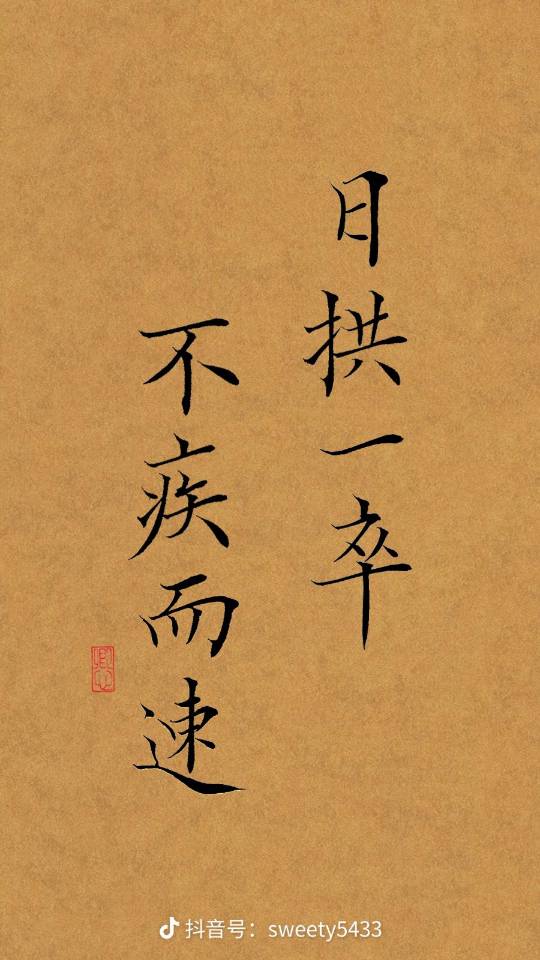 日拱一卒
不疾而速
抖音号：sweety5433